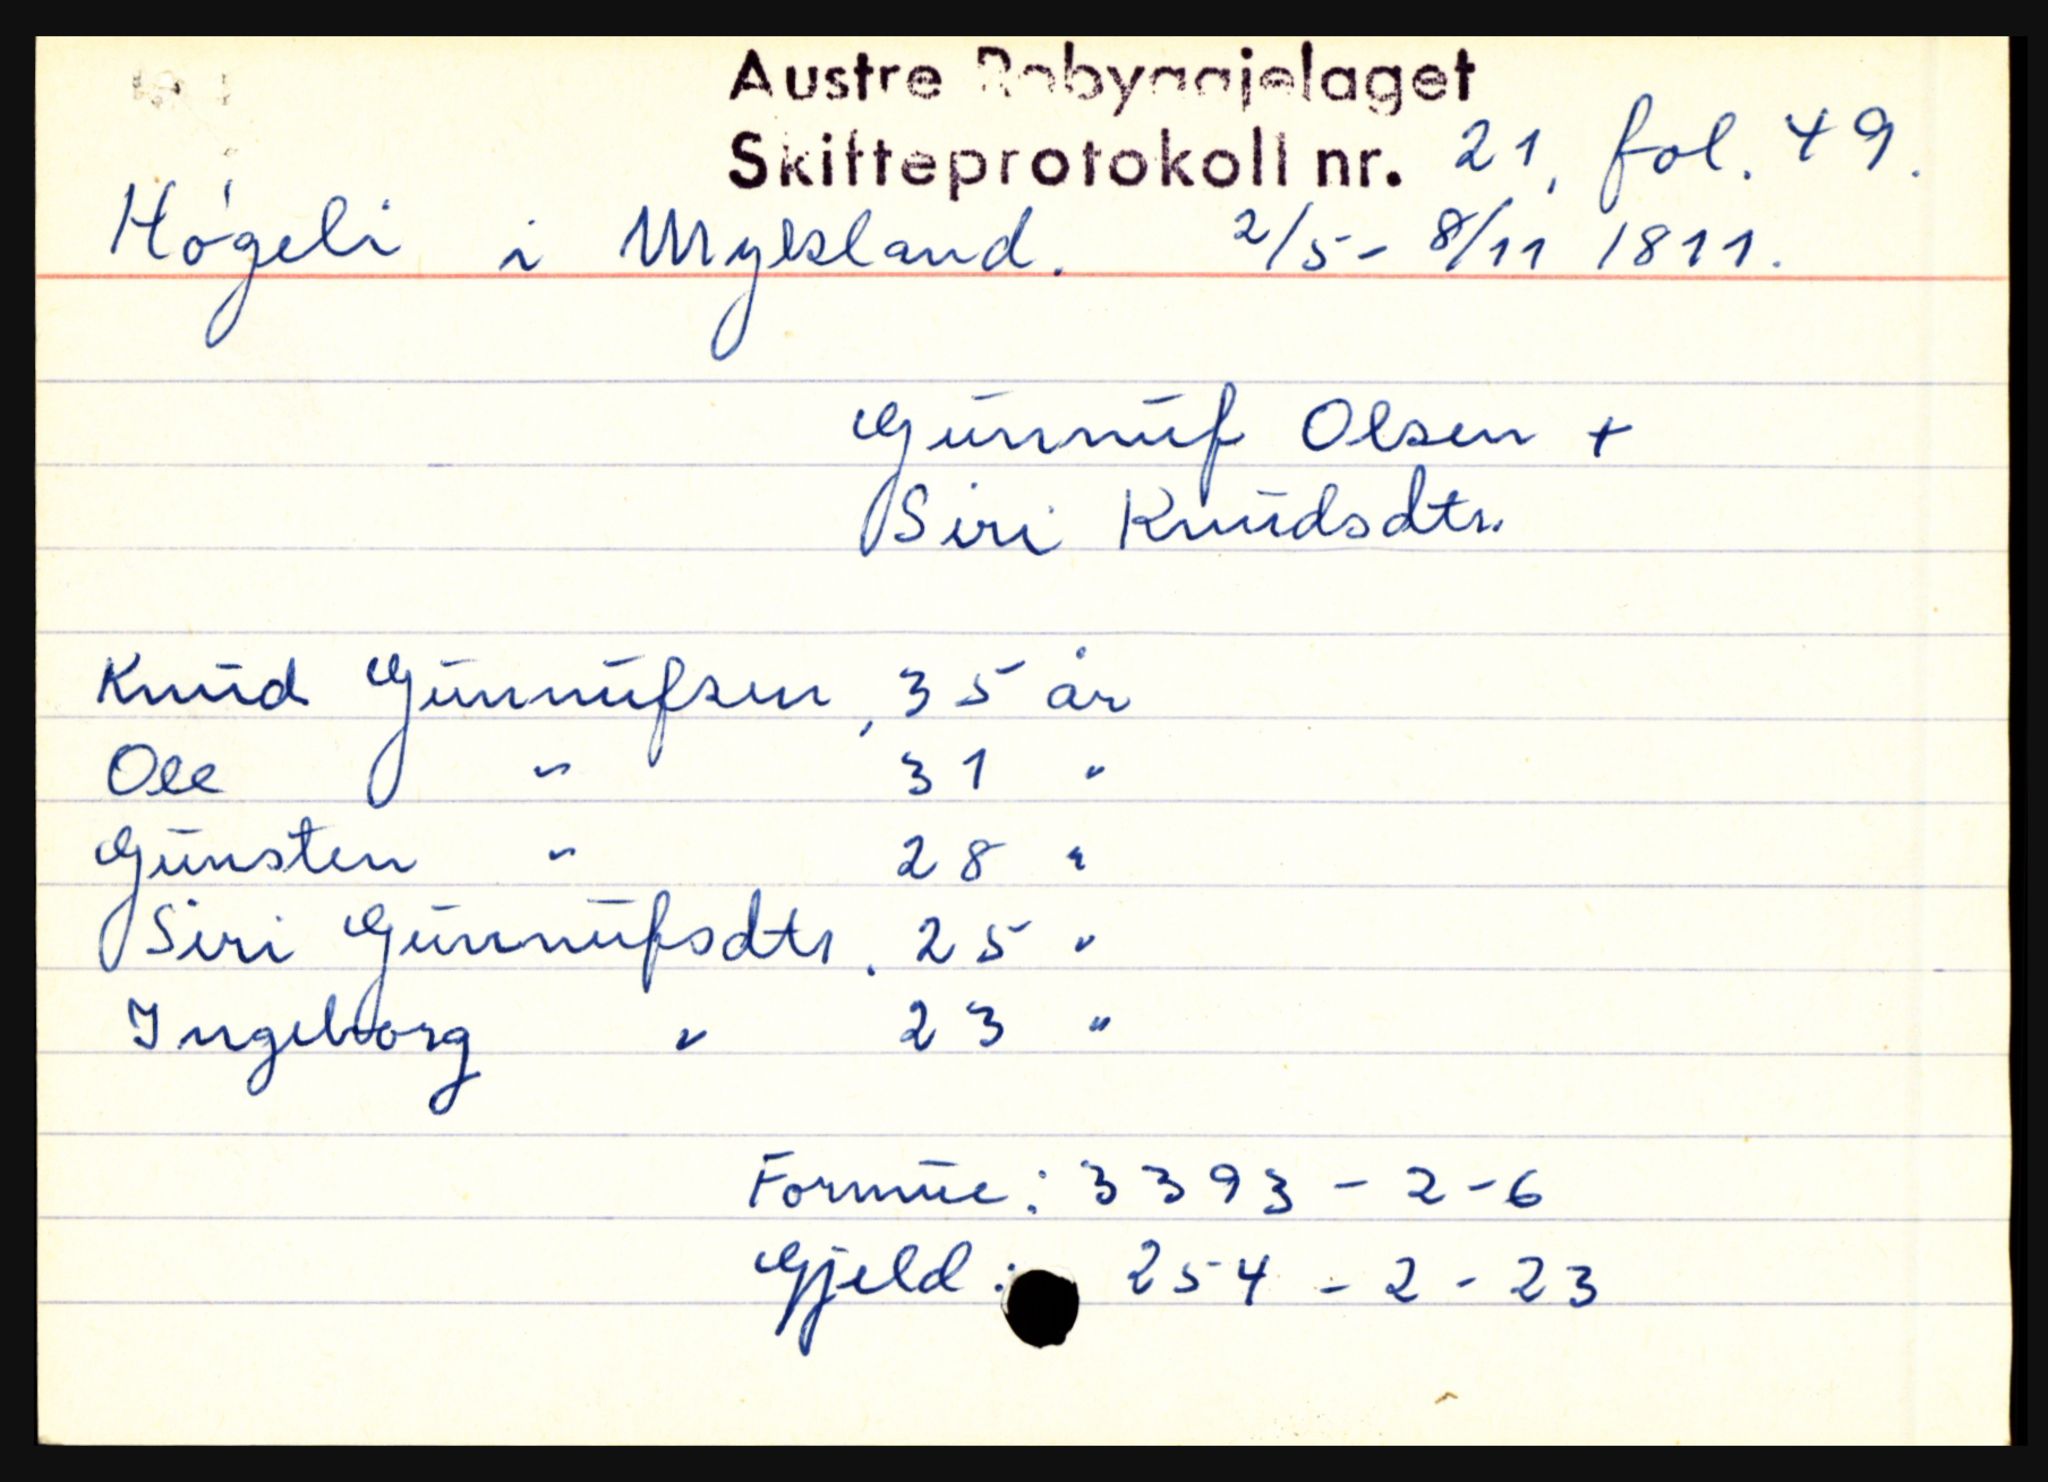 Austre Robyggjelaget
Skifteprotokoll nr. 21, fol. 49.
Høgeli i Mykland. 2/5 - 8/11 1811.
Gunnuf Olsen +
Siri Knudsdtr.
Knud Gunnufsen, 35 år
Ole " 31 "
Gunsten " 28 "
Siri Gunnufsdtr. 25 "
Ingeborg " 23 "
Formue: 3393 - 2 - 6
Gjeld: 254 - 2 - 23